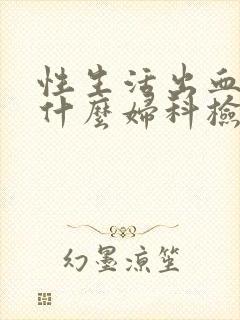 性生活出血
什麼婦科檢
幻墨涼笙